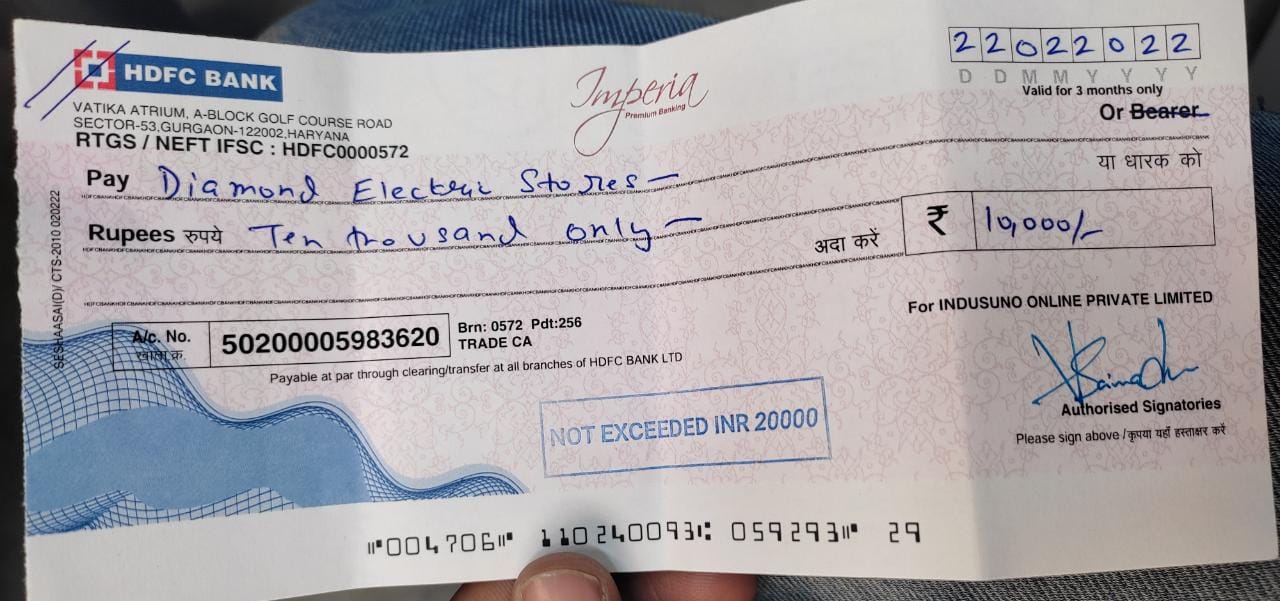 HDFC BANK
VATIKA ATRIUM, A-BLOCK GOLF COURSE ROAD
SECTOR-53,GURGAON-122002,HARYANA
RTGS / NEFT IFSC : HDFC0000572
Imperia
Premium Banking
22022022
D D M M Y Y Y Y
Valid for 3 months only
Or Bearer
या धारक को
Pay Diamond Electric Stores
Rupees रुपये Ten thousand only
अदा करें ₹ 10,000/-
For INDUSUNO ONLINE PRIVATE LIMITED
A/c. No.
खाता क्र.
50200005983620
Brn: 0572 Pdt:256
TRADE CA
Payable at par through clearing/transfer at all branches of HDFC BANK LTD
NOT EXCEEDED INR 20000
Authorised Signatories
Please sign above /कृपया यहाँ हस्ताक्षर करें
SESHAASAI(D)/ CTS-2010 020222
⑈004706⑈ 110240093⑆ 059293⑈ 29